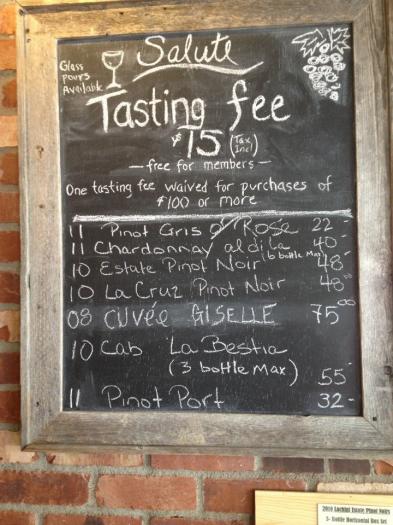 Salute
Glass
pours
Available
Tasting fee
$15 (Tax Incl)
— free for members —
One tasting fee waived for purchases of
$100 or more
11 Pinot Gris of Rose 22-
11 Chardonnay al di la 40-
10 Estate Pinot Noir (6 bottle Max) 48-
10 La Cruz Pinot Noir 48⁰⁰
08 CUVÉE GISELLE 75⁰⁰
10 Cab La Bestia
(3 bottle Max) 55-
11 Pinot Port 32-
2010 Luchini Estate Pinot Noirs
3- Bottle Horizontal Box Set